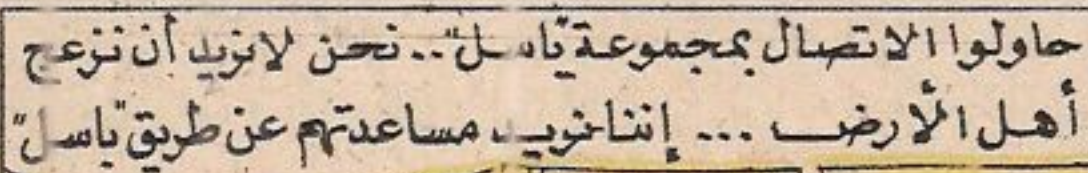 حاولوا الاتصال بمجموعة "باسل".. نحن لا نريد أن نزعج
أهل الأرض ... إننا نريد مساعدتهم عن طريق "باسل"